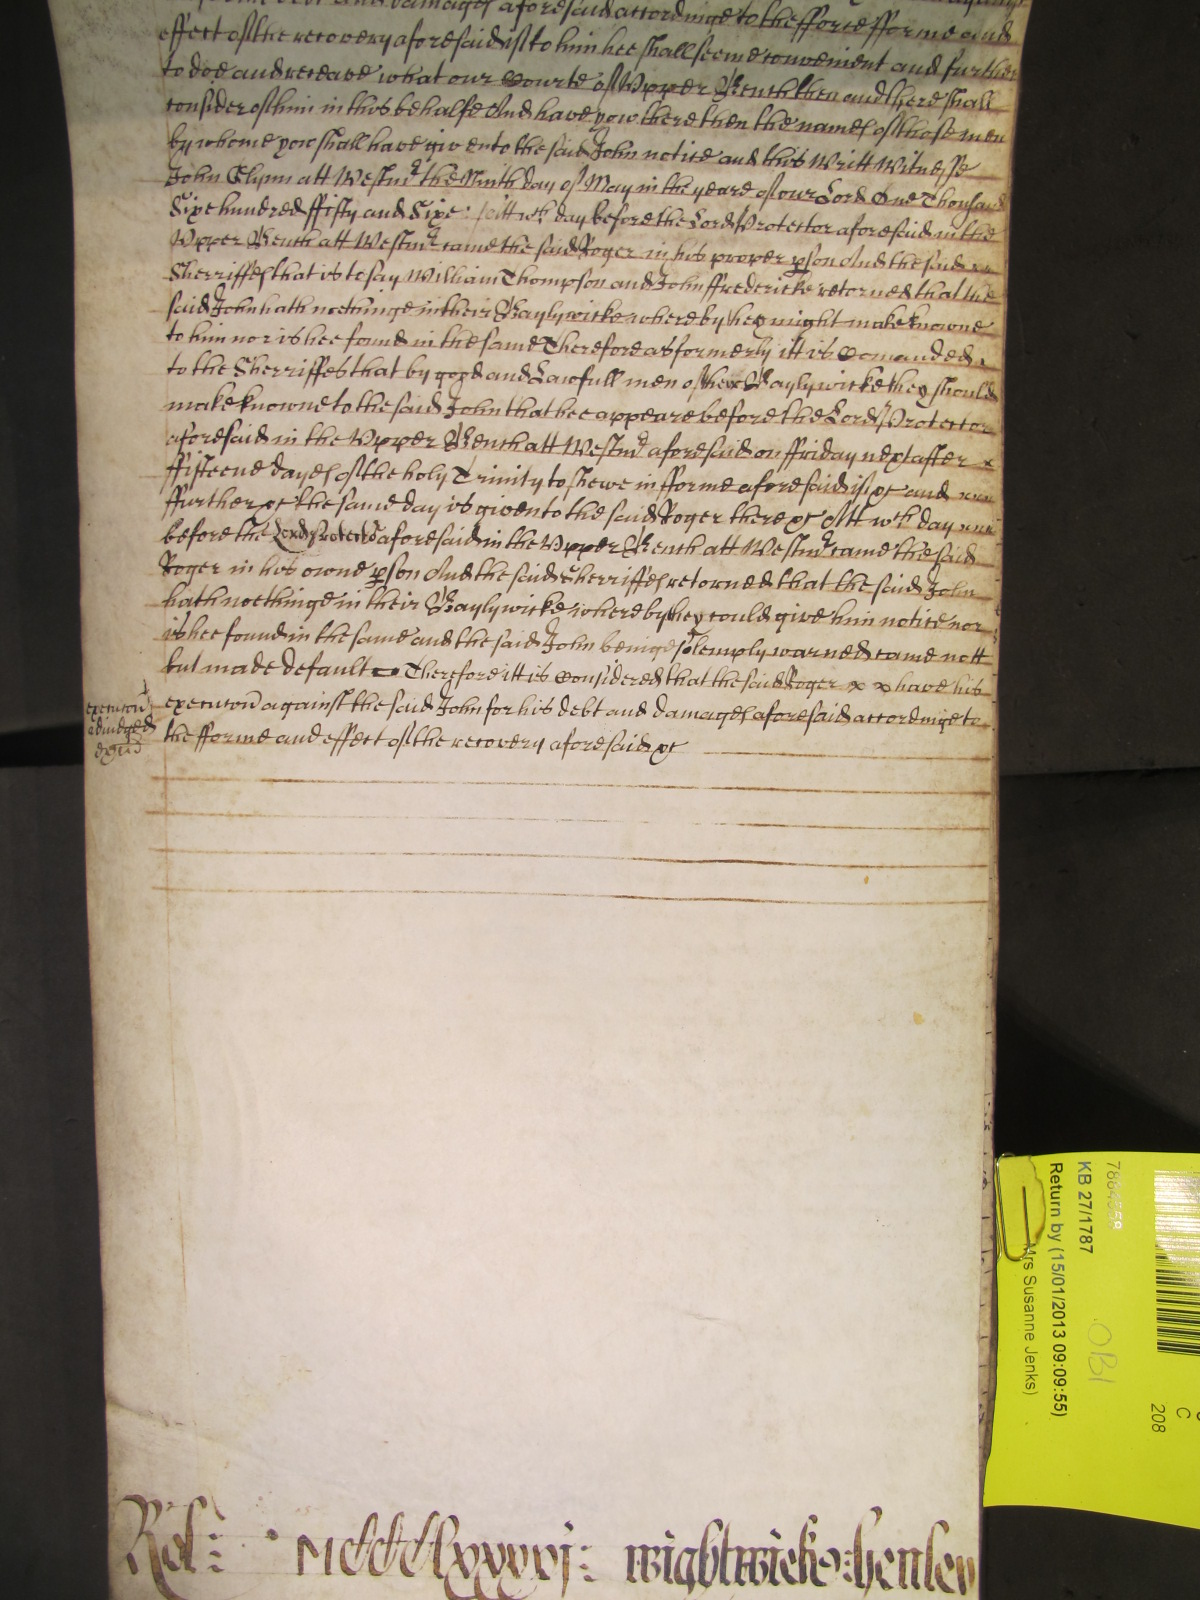 debt and damages aforesaid accordinge to the fforce fforme and
effect of the recovery aforesaid if to him hee shall seeme convenient and further
to doe and receave what our Courte of Upper Bench then and there shall
consider of him in this behalfe And have yow there then the names of those men
by whome yow shall have given to the said John notice and this Writt Witnesse
John Glynn att Westmr the Ninth day of May in the yeare of our Lord One Thousand
Sixe hundred ffifty and Sixe: Att wch day before the Lord Protector aforesaid in the
Upper Bench att Westmr came the said Roger in his proper pson And the said
Sherriffes that is to say William Thompson and John ffredericke retorned that the
said John hath noethinge in their Baylywicke whereby they might make knowne
to him nor is hee found in the same Therefore as formerly itt is Comanded
to the Sherriffes that by good and Lawfull men of their Baylywicke they should
make knowne to the said John that hee appeare before the Lord Protector
aforesaid in the Upper Bench att Westmr aforesaid on ffriday next after x
ffifteene dayes of the holy Trinity to shewe in fforme aforesaid if &c and
ffurther &c the same day is given to the said Roger there &c Att wch day
before the Lord Protector aforesaid in the Upper Bench att Westmr came the said
Roger in his owne pson And the said Sherriffes retorned that the said John
hath noethinge in their Baylywicke whereby they could give him notice nor
is hee found in the same and the said John beinge solemply warned came nott
but made default Therefore itt is Considered that the said Roger x x have his
execucon against the said John for his debt and damages aforesaid accordinge to
the fforme and effect of the recovery aforesaid &c
execucon
adiudged
Rol: MCCCClxxxxvj: wightwicke: henley
7884358
KB 27/1787
Return by (15/01/2013 09:09:55)
Mrs Susanne Jenks)
OBI
C
208